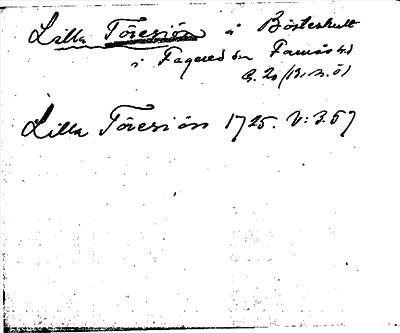 Lilla Töresjön å Bösteshult
i Fagered sn Faurås hd
G. 20 (13, n. ö)
Lilla Töresjön 1725. V: 3.57